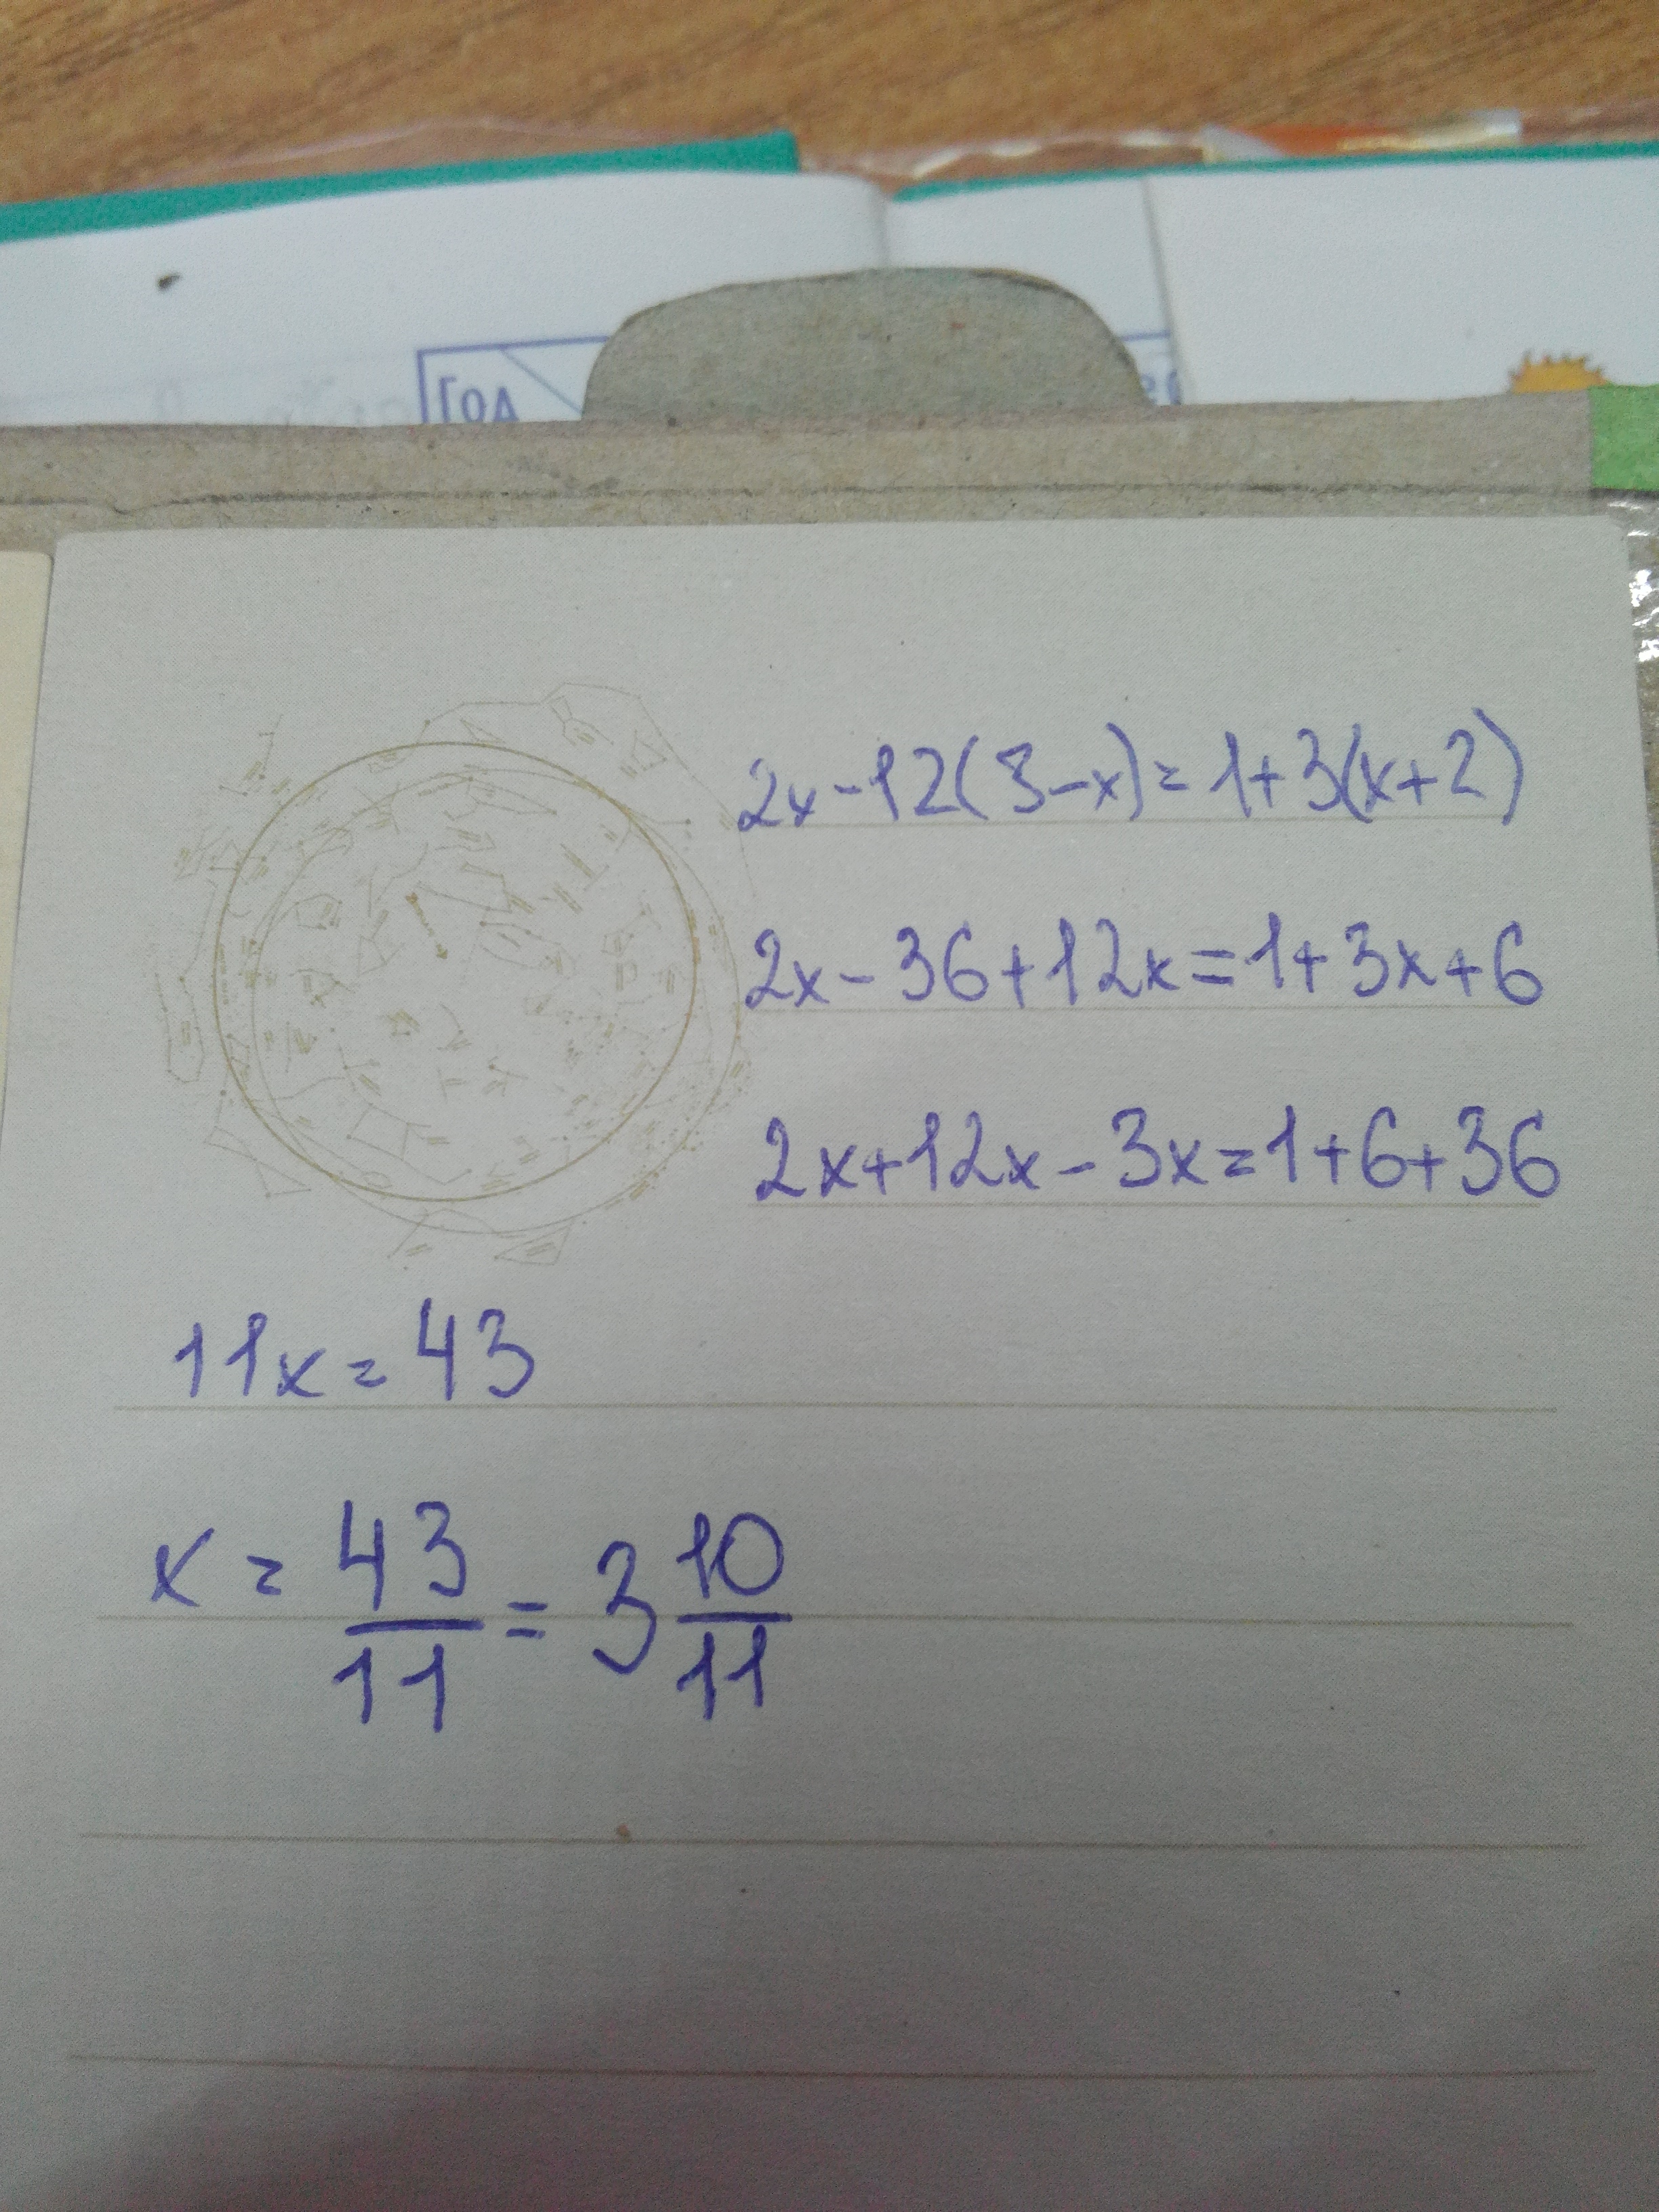 Год
2x-12(3-x)=1+3(x+2)
2x-36+12x=1+3x+6
2x+12x-3x=1+6+36
11x=43
x=43/11=3 10/11